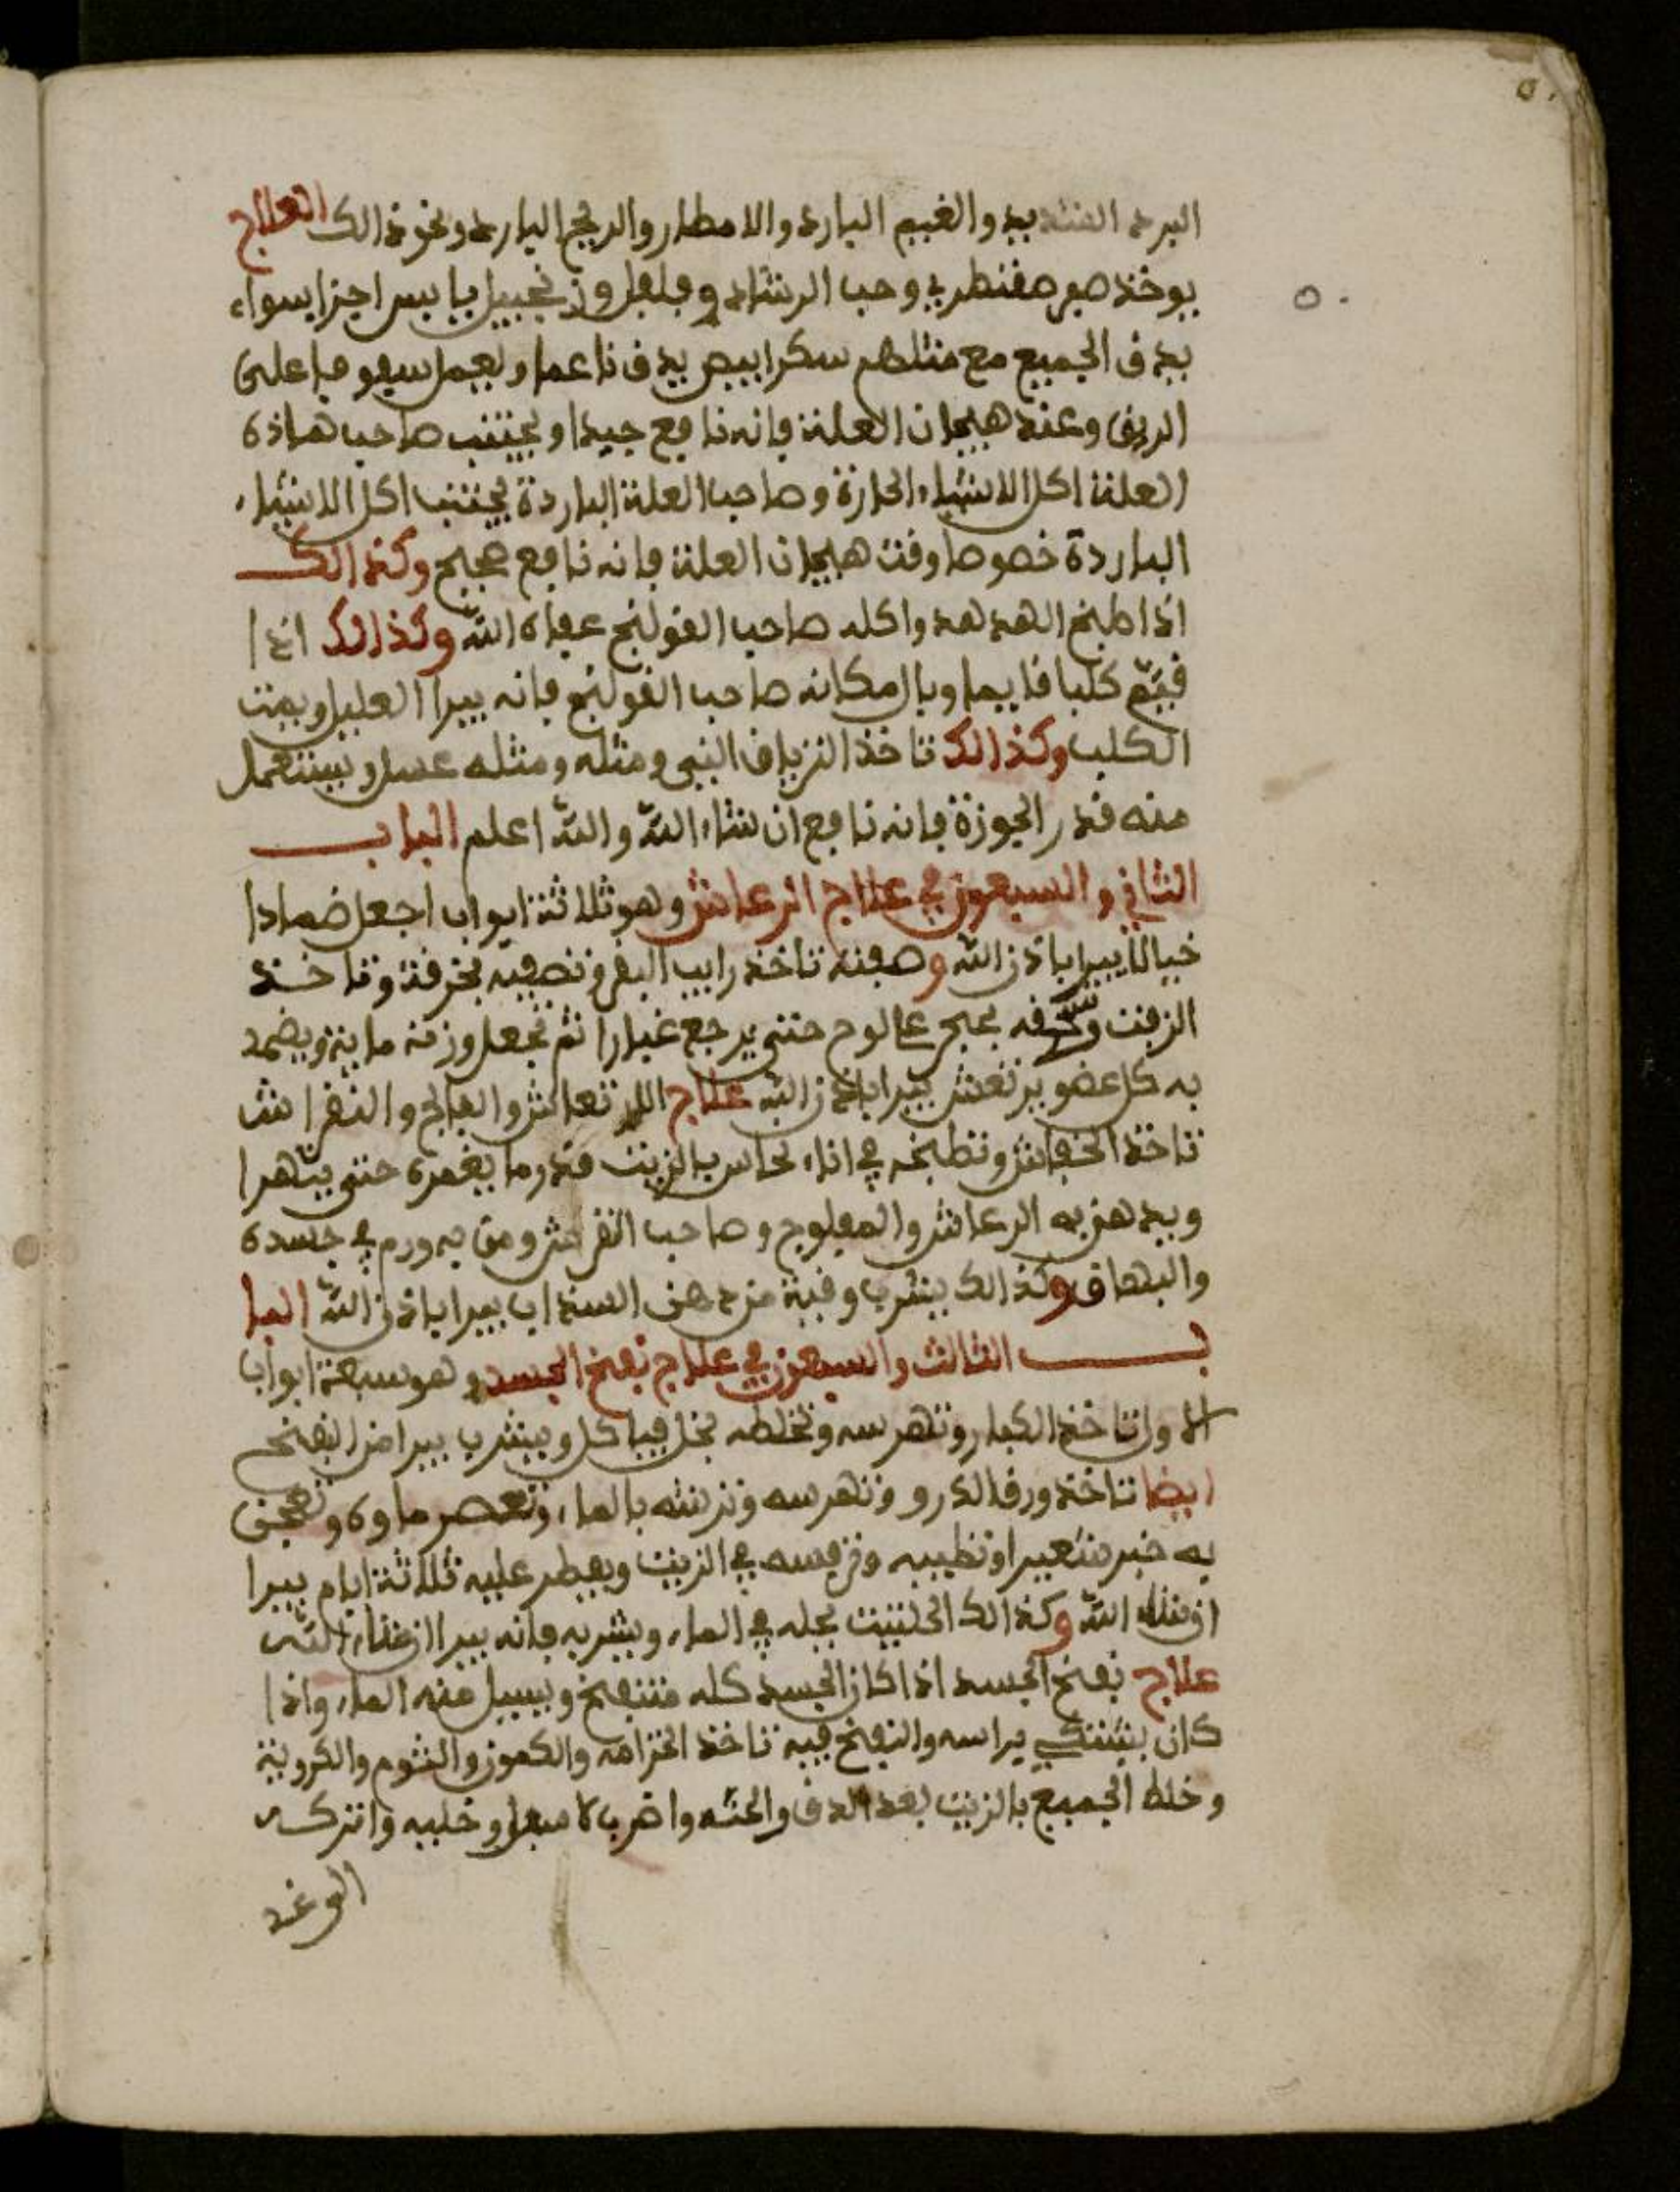 البرد الشديد والغيم البارد والامطار والريح الباردة ونحو ذالك العلاج
يوخذ صعتر وحب الرشاد وفلفل وزنجبيل يابس اجزا سواء
يدق الجميع مع مثلهم سكر ابيض يدق ناعما ويعمل سفوفا على
الريق وعند هيجان العلة فانه نافع جيدا ويجتنب صاحب هاذه
العلة اكل الاشياء الحارة وصاحب العلة الباردة يجتنب اكل الاشياء
الباردة خصوصا وقت هيجان العلة فانه نافع صحيح وكذالك
اذا طبخ الهدهد واكله صاحب القولنج عفاه الله وكذالك اذا
قيم كلبا قايما وبال مكانه صاحب القولنج فانه يبرا العليل ويمت
الكلب وكذالك تاخذ الترياق النبي ومثله ومثله عسل ويستعمل
منه قدر الجوزة فانه نافع ان شاء الله والله اعلم الباب
الثاني والسبعون في علاج الرعاش وهو ثلاثة ابواب اجعل ضمادا
خيالا يبرا باذن الله وصفته تاخذ رايب البقر وتصفيه بخرقة وتاخذ
الزفت وتسحقه بحجر على لوح حتى يرجع غبارا ثم تجعل وزنه ماية ويضمد
به كل عضو يرتعش يبرا باذن الله علاج الارتعاش والفالج والنقراش
تاخذ الخفاش وتطبخه في اناء نحاس بالزيت قدر ما يغمره حتى يتهرا
ويدهن به الرعاش والمفلوج وصاحب النقرش ومن به ورم في جسده
والبهاق وكذالك يشرب وقية من دهن السنداب يبرا باذن الله البا
ب الثالث والسبعون في علاج نفخ الجسد وهو سبعة ابواب
الاول تاخذ الكبار وتهرسه وتخلطه بخل فياكل ويشرب يبرا من النفخ
ايضا تاخذ ورق الدرو وتهرسه وترشه بالماء وتعصر ماوه وتعجن
به خبز شعير وتطيبه وتريسه في الزيت ويفطر عليه ثلاثة ايام يبرا
ان شاء الله وكذالك الحلتيت يحله في الماء ويشربه فانه يبرا ان شاء الله
علاج نفخ الجسد اذا كان الجسد كله منتفخ ويسيل منه الماء واذا
كان يشتكي براسه والنفخ فيه تاخذ الخزامه والكمون والثوم والكروية
وخلط الجميع بالزيت بعد الدق واحشه واضرب وخليه واتركه
الى غد
٥٠
٥٠